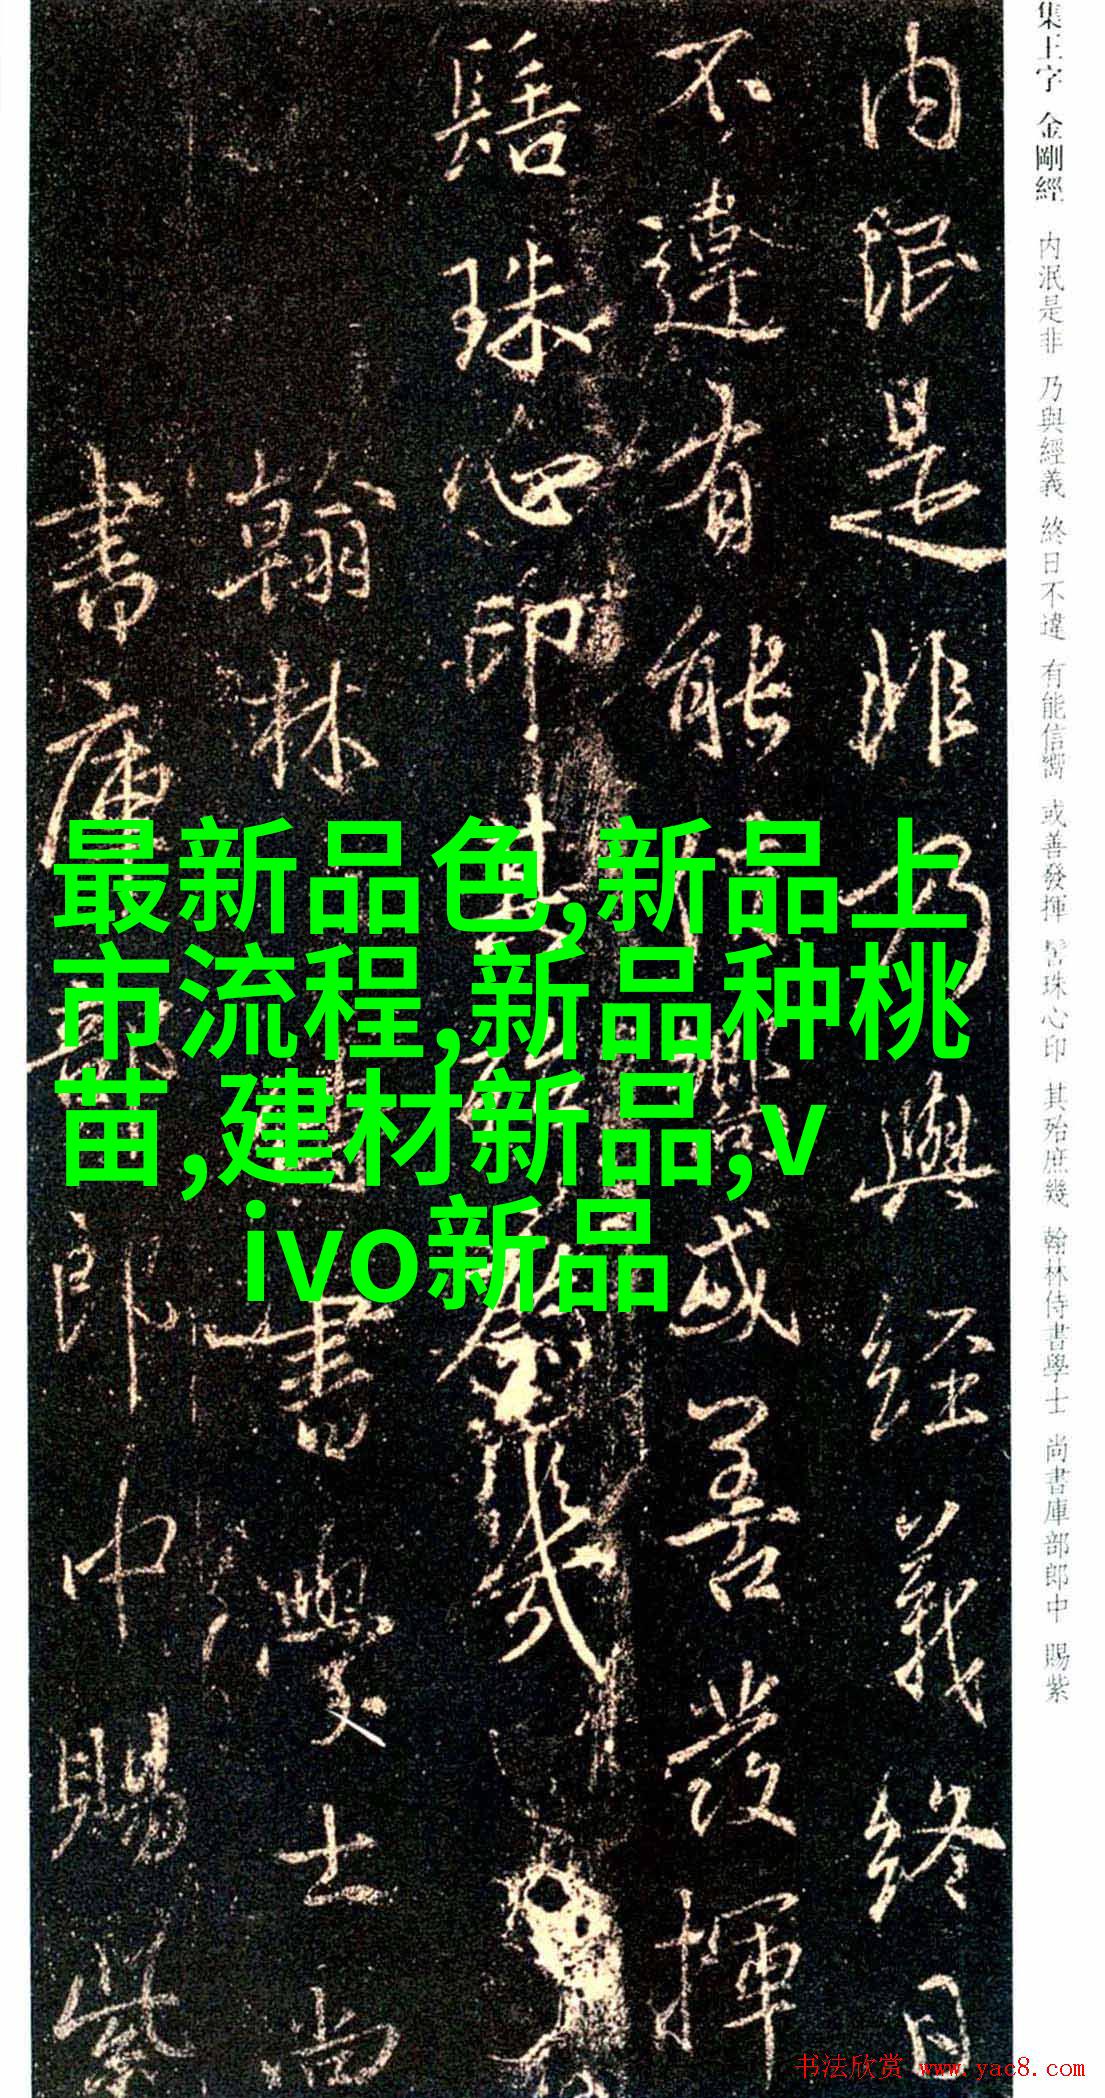 集王字 金剛經 內泯是非 乃與經義 終日不違 有能信嚮 或善發揮 髻珠心印 其殆庶幾 翰林侍書學士 尚書庫部郎中 賜紫
內泯是非乃與經義終日
不違有能信嚮或善發揮
髻珠心印其殆庶幾
翰林侍書學士尚
書庫部郎中賜紫
最新品色,新品上
市流程,新品种桃
苗,建材新品,v
ivo新品
书法欣赏 www.yac8.com